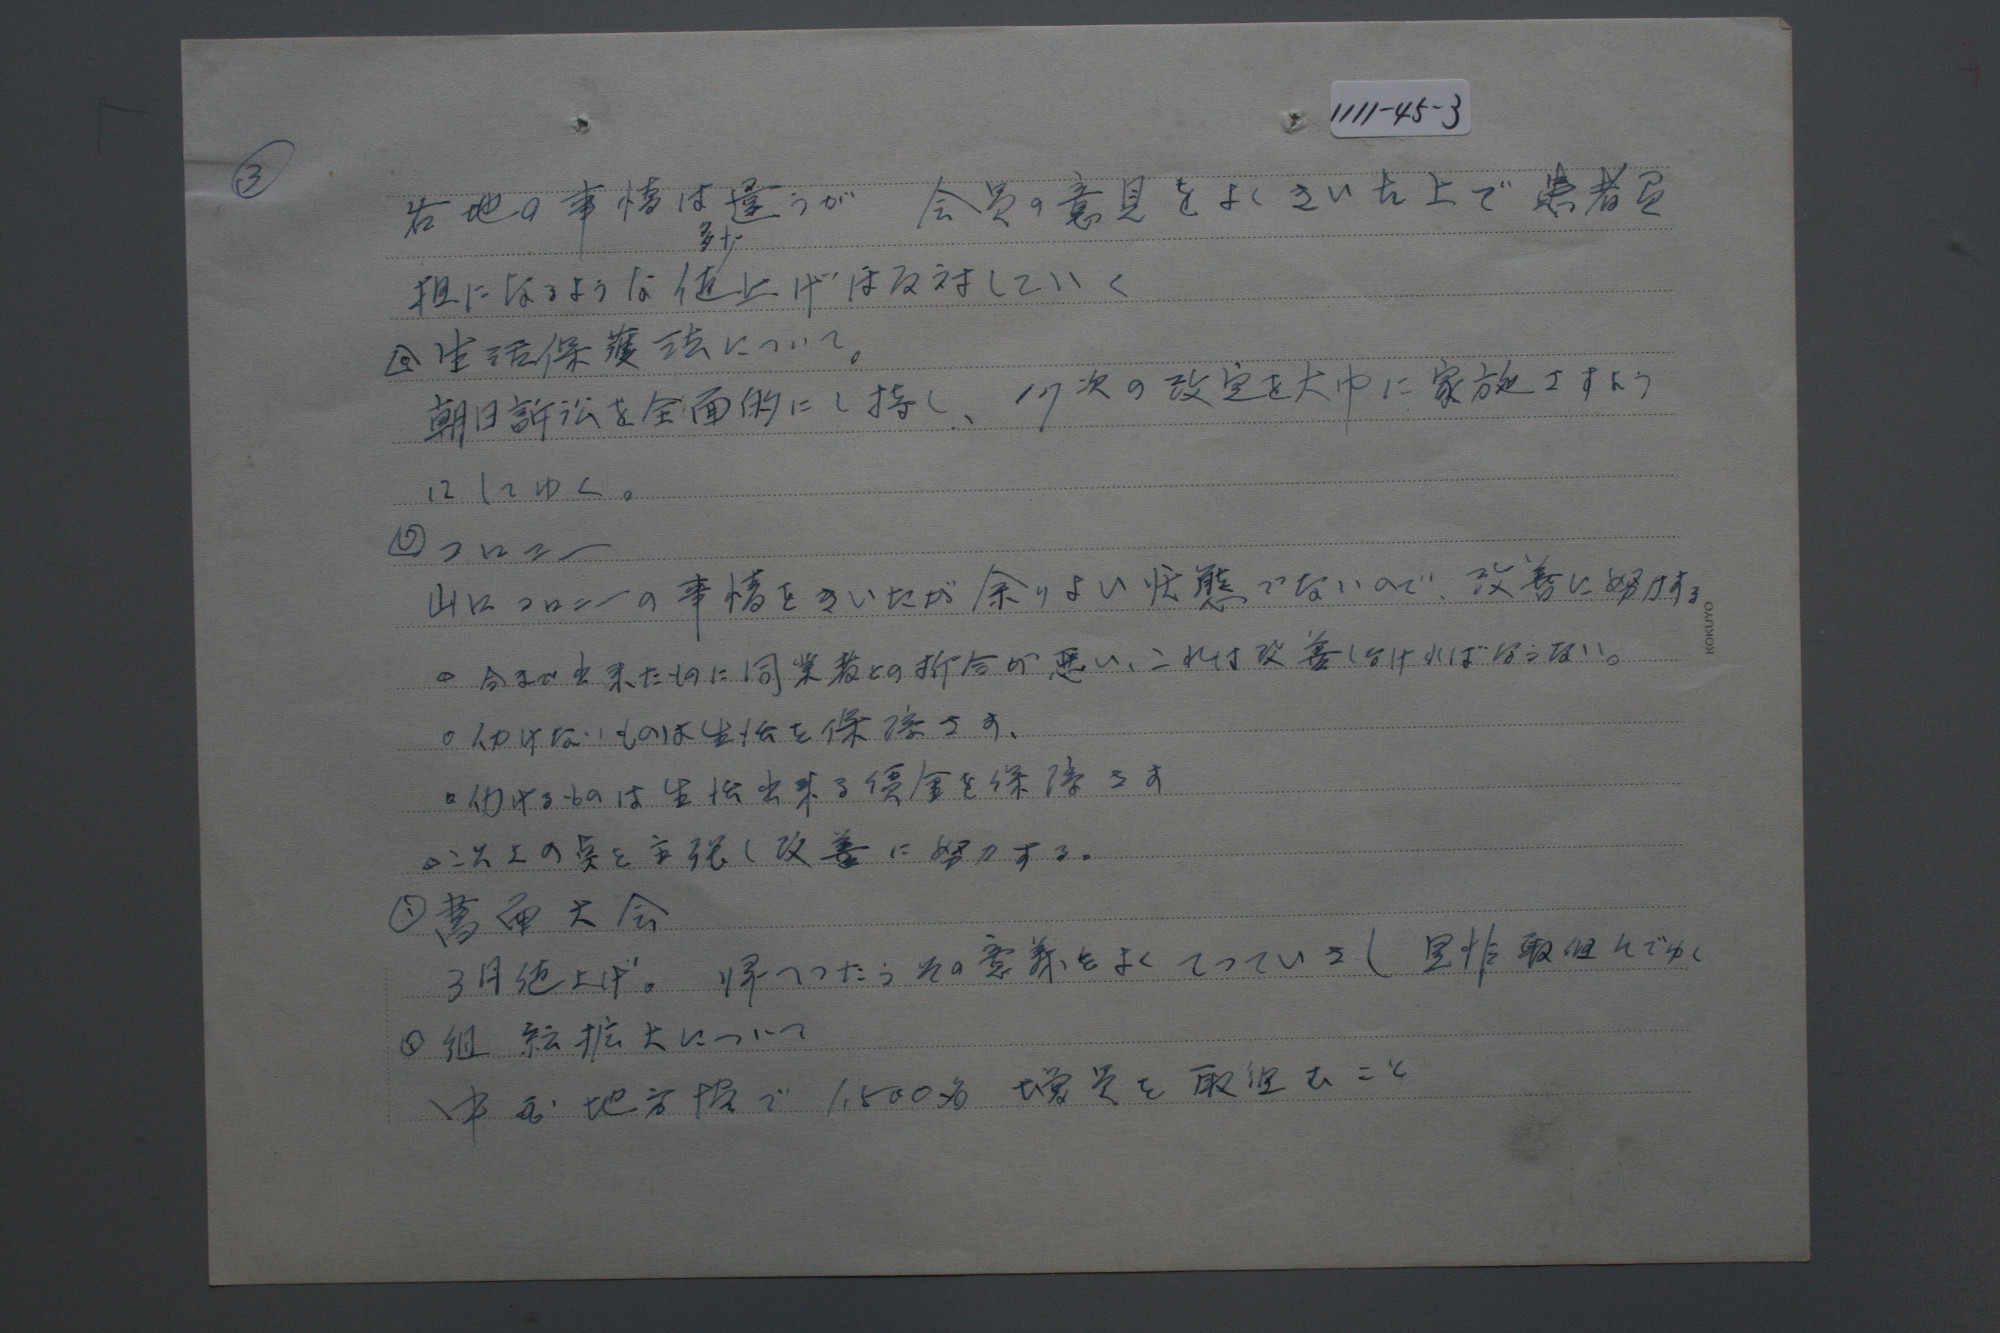 1111-45-3
③
各地の事情は違うが 会員の意見をよくきいた上で患者負
多少
担になるような値上げは反対していく
生活保護法について。
朝日訴訟を全面的にし持し、17次の改定を大巾に実施さすよう
にしてゆく。
コロニー
山口コロニーの事情をきいたが余りよい状態でないので、改善に努力する
KOKUYO
○ 今まで出来たものに同業者との折合が悪い、これは改善しなければならない。
○ 働けないものは生活を保障さす、
○ 働けるものは生活出来る賃金を保障さす
○ 以上の点を主張し改善に努力する。
大会
3月値上げ。帰つたらその意義をよく 取組んでゆく
組織拡大について
中国地方協で1,500名 増員を取組むこと